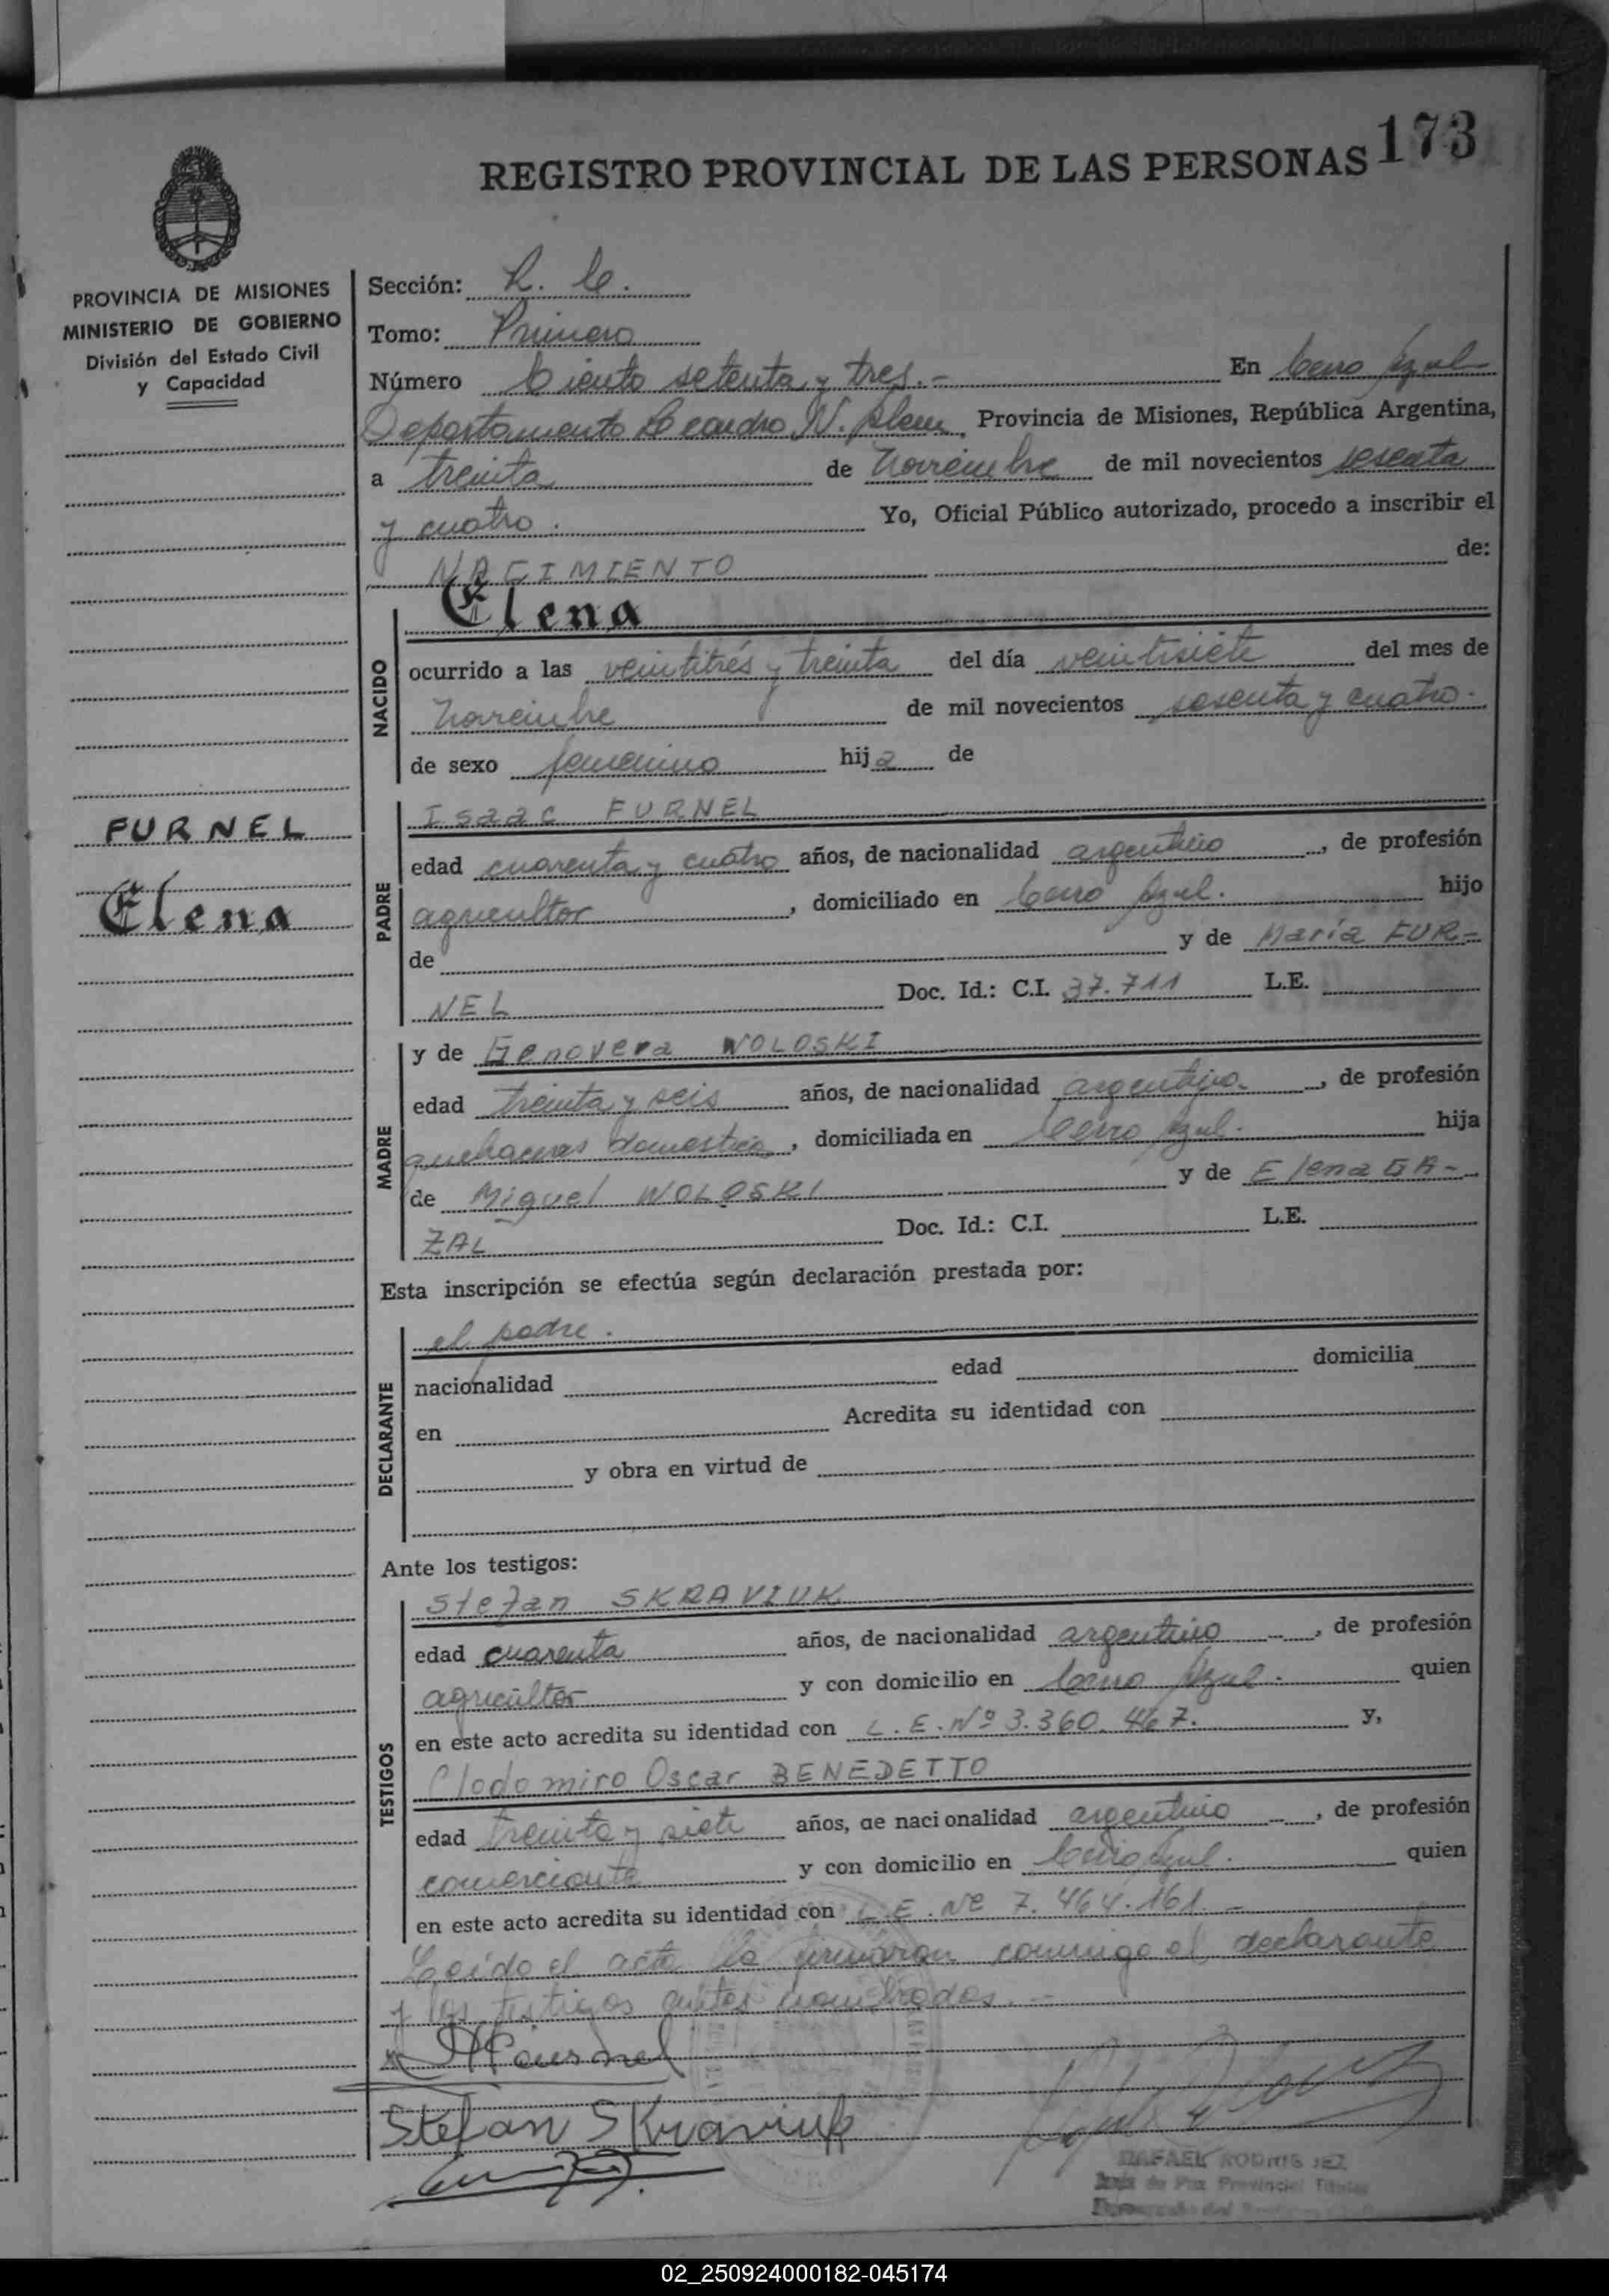 173
REGISTRO PROVINCIAL DE LAS PERSONAS
PROVINCIA DE MISIONES
MINISTERIO DE GOBIERNO
División del Estado Civil
y Capacidad
FURNEL
Elena
Sección: R. C.
Tomo: Primero
Número Ciento setenta y tres.- En Cerro Azul
Departamento Leandro N. Alem, Provincia de Misiones, República Argentina,
a treinta de noviembre de mil novecientos sesenta
y cuatro. Yo, Oficial Público autorizado, procedo a inscribir el
NACIMIENTO de:
NACIDO
Elena
ocurrido a las veintitrés y treinta del día veintisiete del mes de
noviembre de mil novecientos sesenta y cuatro.
de sexo femenino hija de
PADRE
Isaac FURNEL
edad cuarenta y cuatro años, de nacionalidad argentino, de profesión
agricultor, domiciliado en Cerro Azul. hijo
de y de María FUR-
NEL Doc. Id.: C.I. 37.711 L.E.
MADRE
y de Genovera WOLOSKI
edad treinta y seis años, de nacionalidad argentina, de profesión
quehaceres domesticos, domiciliada en Cerro Azul. hija
de Miguel WOLOSKI y de Elena GA-
ZAL Doc. Id.: C.I. L.E.
Esta inscripción se efectúa según declaración prestada por:
DECLARANTE
el padre.
nacionalidad edad domicilia
en Acredita su identidad con
y obra en virtud de
Ante los testigos:
TESTIGOS
Stefan SKRAVIUK
edad cuarenta años, de nacionalidad argentino, de profesión
agricultor y con domicilio en Cerro Azul. quien
en este acto acredita su identidad con L.E. Nº 3.360.467. y,
Clodomiro Oscar BENEDETTO
edad treinta y siete años, de nacionalidad argentino, de profesión
comerciante y con domicilio en Cerro Azul. quien
en este acto acredita su identidad con L.E. Nº 7.464.161.-
Leído el acta la firmaron conmigo el declarante
y los testigos antes nombrados.-
Stefan SKraviuk
RAFAEL RODRIGUEZ
Juez de Paz Provincial Titular
02_250924000182-045174